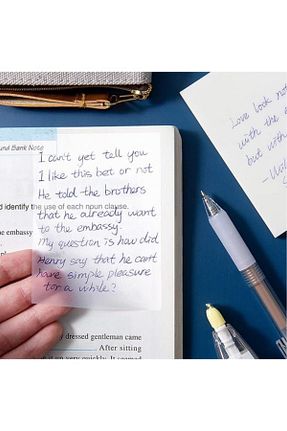 und Bank Note
I can't yet tell you
I like this bet or not
He told the brothers
d identify the use of each noun clause.
that he already want
to the embassy.
e embassy
My question is how did
Henry say that he can't
have simple pleasure
for a while?
y dressed gentleman came
. After sitting
it up very quickly. It seemed
Love look not
with the
but with